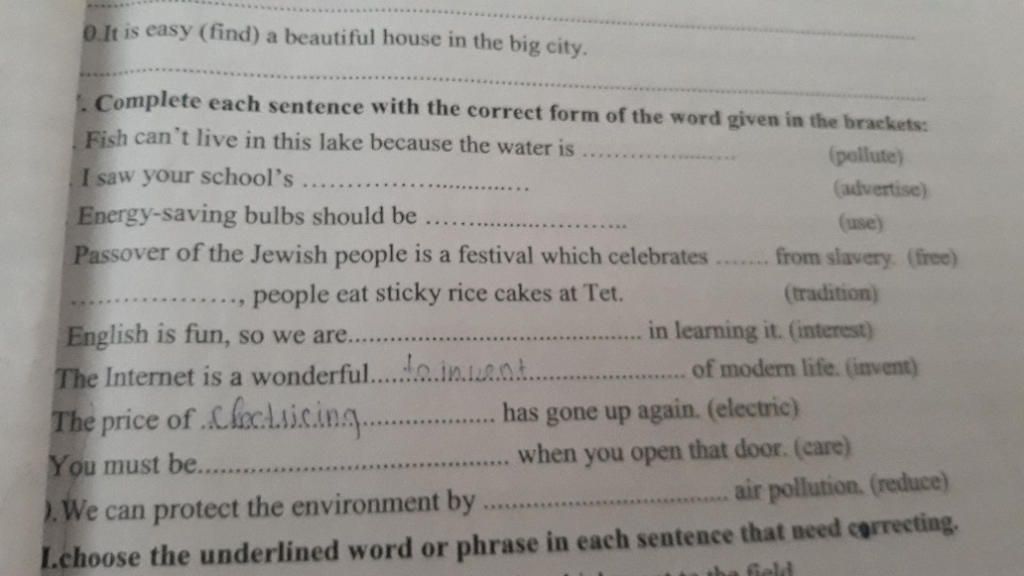 0.It is easy (find) a beautiful house in the big city.
. Complete each sentence with the correct form of the word given in the brackets:
. Fish can't live in this lake because the water is ........................ (pollute)
. I saw your school's .................................. (advertise)
. Energy-saving bulbs should be .............................. (use)
Passover of the Jewish people is a festival which celebrates ....... from slavery. (free)
.................., people eat sticky rice cakes at Tet. (tradition)
English is fun, so we are............................................ in learning it. (interest)
The Internet is a wonderful......to invent........................ of modern life. (invent)
The price of ..electricing.................... has gone up again. (electric)
You must be.............................................. when you open that door. (care)
). We can protect the environment by .................................... air pollution. (reduce)
I.choose the underlined word or phrase in each sentence that need correcting.
the field